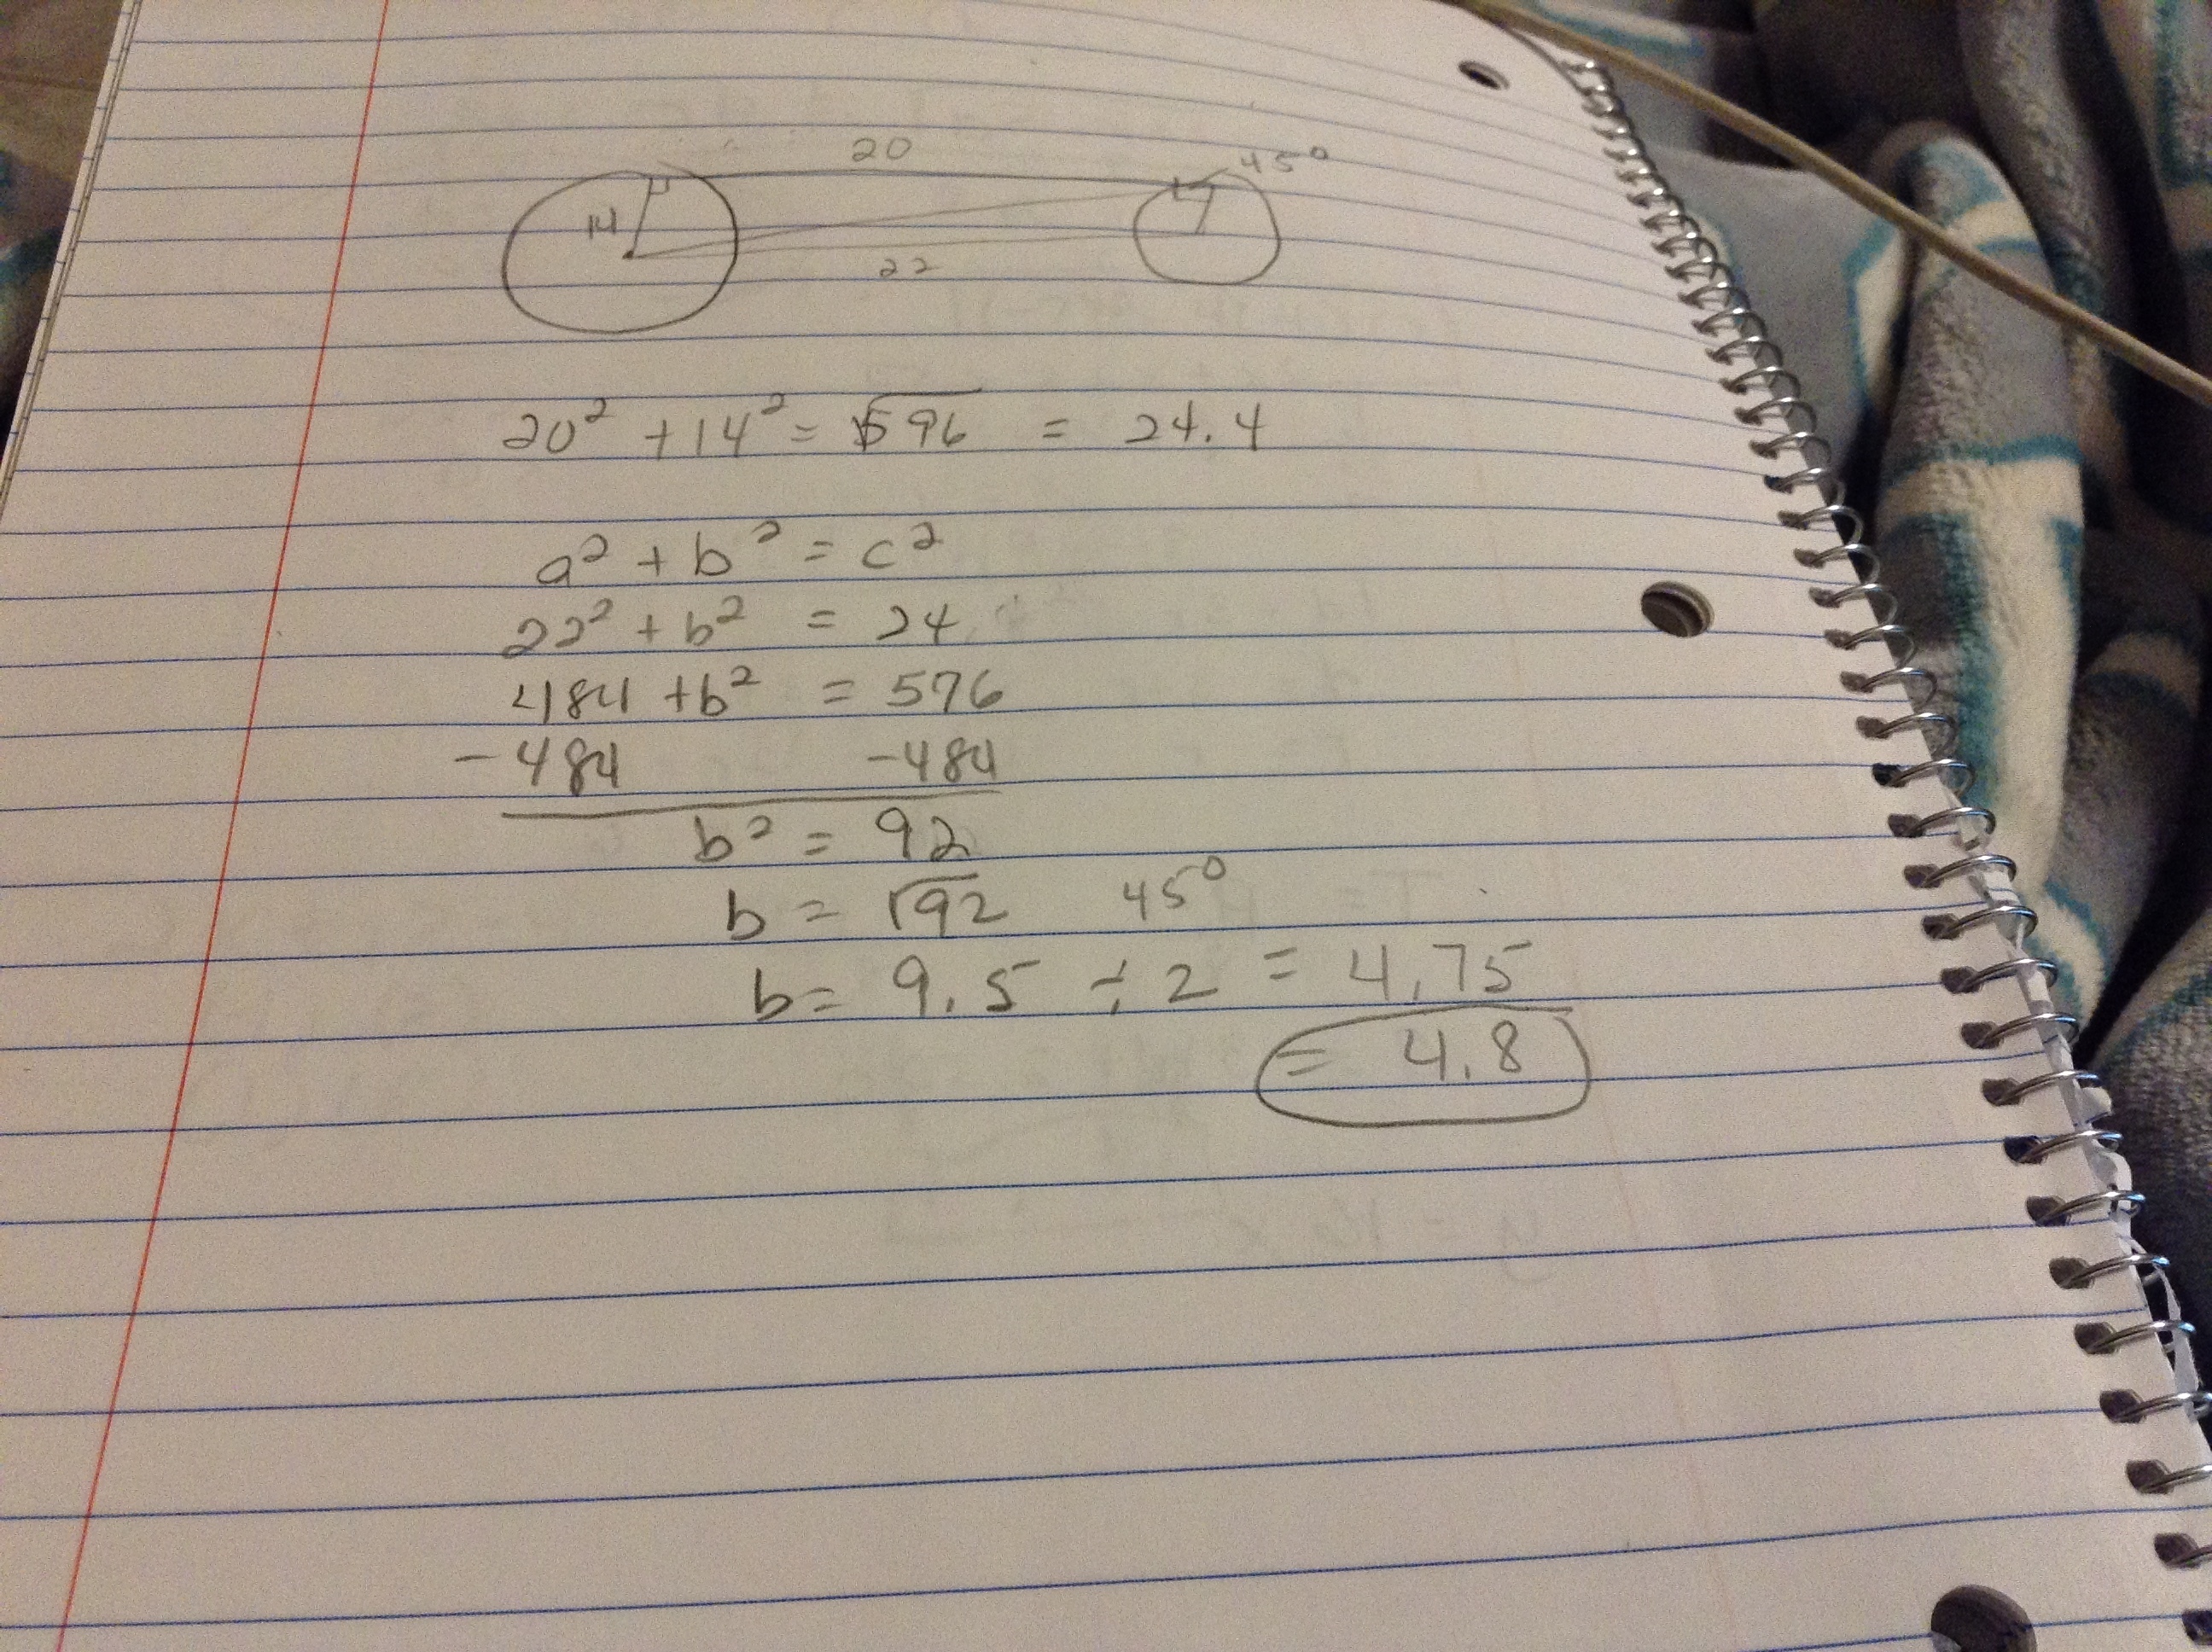 20
45°
14
22
20² + 14² = √596 = 24.4
a² + b² = c²
22² + b² = 24
484 + b² = 576
- 484 -484
b² = 92
b = √92 45°
b = 9.5 ÷ 2 = 4.75
= 4.8